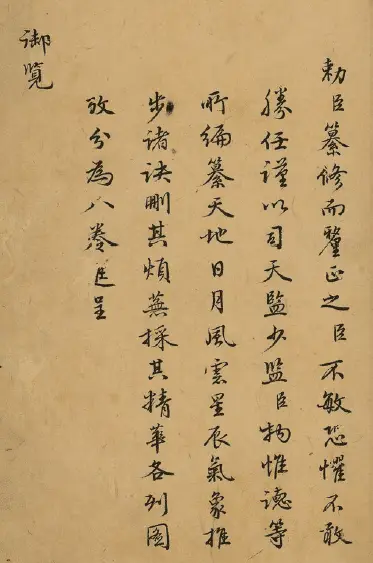 勅臣纂修而釐正之臣不敏恐懼不敢
勝任謹以司天監少監臣杨惟德等
所編纂天地日月風雲星辰氣象推
步諸訣刪其煩蕪採其精華各列圖
攷分為八卷進呈
御覽